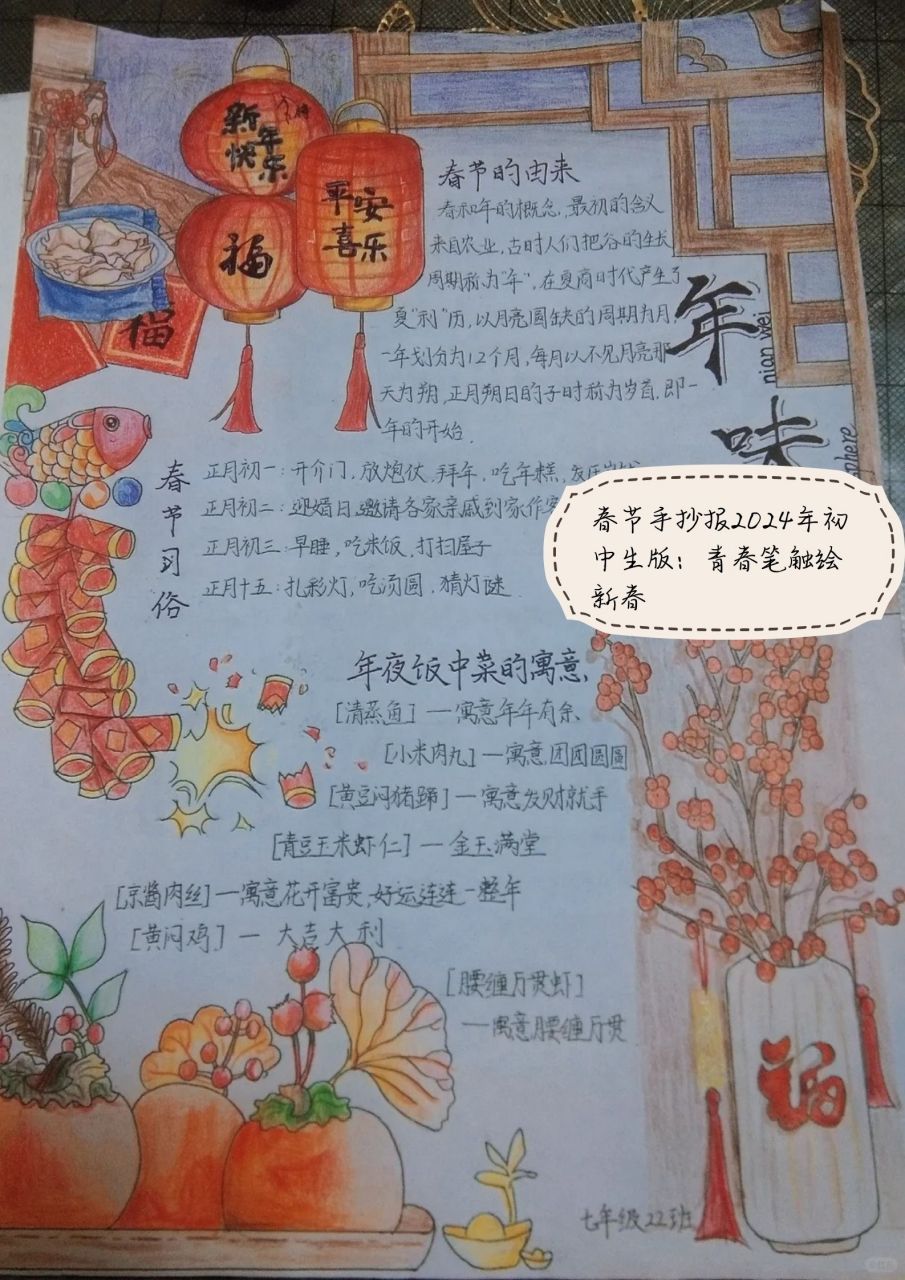 新年
快乐
平安
喜乐
福
福
春节的由来
春和年的概念，最初的含义
来自农业，古时人们把谷的生长
周期称为"年"，在夏商时代产生了
夏"利"历，以月亮圆缺的周期为月，
一年划分为12个月，每月以不见月亮那
天为朔，正月朔日的子时称为岁首，即一
年的开始．
年味
nian wei
春节习俗
正月初一：开介门，放炮仗，拜年，吃年糕，发压岁钱
正月初二：迎婿日，邀请各家亲戚到家作客
正月初三：早睡，吃米饭，打扫屋子
正月十五：扎彩灯，吃汤圆．猜灯谜．
春节手抄报2024年初
中生版：青春笔触绘
新春
年夜饭中菜的寓意．
[清蒸鱼]—寓意年年有余
[小米肉丸]—寓意团团圆圆
[黄豆闷猪蹄]—寓意发财就手
[青豆玉米虾仁]—金玉满堂
[京酱肉丝]—寓意花开富贵，好运连连一整年
[黄闷鸡]—大吉大利
[腰缠万贯虾]
—寓意腰缠万贯
福
七年级22班